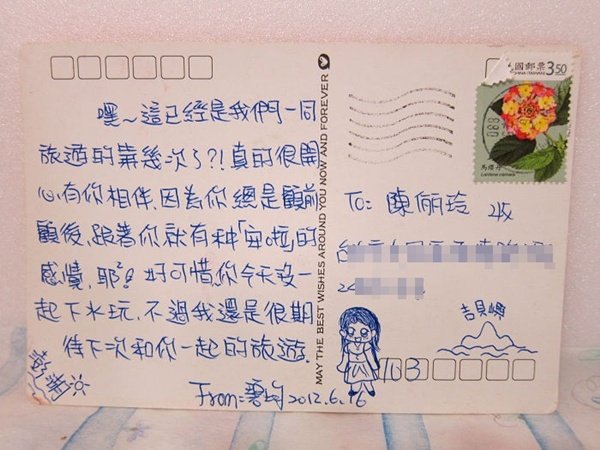 嘿～這已經是我們一同
旅遊的第幾次了?!真的很開
心有你相伴,因為你總是顧前
顧後,跟著你就有种「安啦」的
感覺,耶!! 好可惜你今天沒一
起下水玩,不過我還是很期
待下次和你一起的旅遊.
From:
2012.6.16
MAY THE BEST WISHES AROUND YOU NOW AND FOREVER
國郵票 3.50
馬纓丹
Lantana camara
To: 陳俐玲 收
吉貝嶼
103